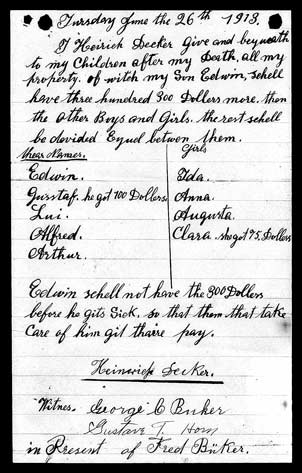 Tursday June the 26th 1913.
I Heirich Decker Give and beqweath
to my Children after my Death, all my
property. of witch my Son Edwin, schell
have three hundred 300 Dollers more. then
the other Boys and Girls. the rest schell
be devided Equel between them.
Thear Names.
Girls
Edwin. Ida.
Gusstaf. he got 100 Dollers Anna.
Lui. Augusta.
Alfred. Clara she got 75, Dollers
Arthur.
Edwin schell not have the 300 Dollers
before he gits Sick. so that them that take
Care of him git thaire pay.
Heinrich Decker.
Witnes. George C Buker
Gustave T. Horn
in Present of Fred Büker.